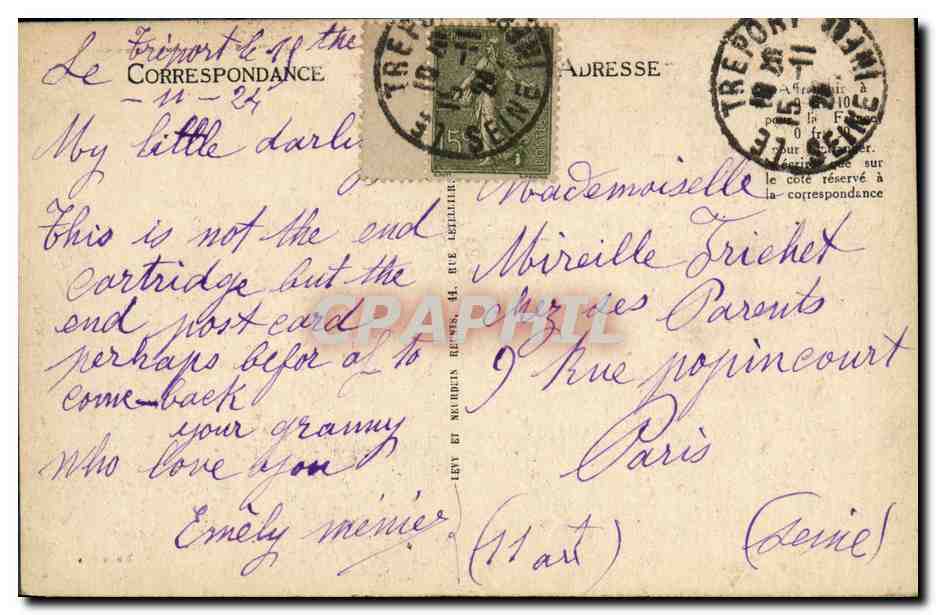 Le Tréport le 15 the
- 11 - 24
CORRESPONDANCE
My little darling
This is not the end
cartridge but the
end post card
perhaps befor of to
come-back
your granny
who love you
Emély ménier
LEVY ET NEURDEIN REUNIS, 44, RUE LETELLIER,
ADRESSE
LE TREPORT
SEINE
15
LE TREPORT
SEINE
15 - 11
Affranchir à
0 10
pour la France
0 fr.
pour
que sur
le côté réservé à
la correspondance
Mademoiselle
Mireille Trichet
chez ses Parents
9 Rue popincourt
Paris
(11 arr)
(Seine)
CPAPHIL